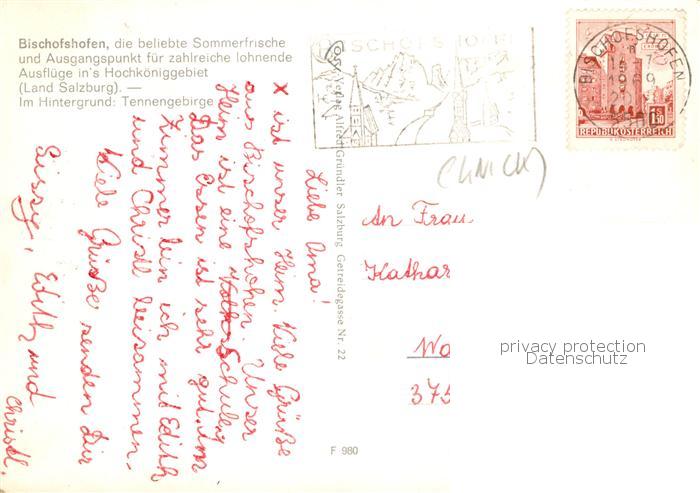 Bischofshofen, die beliebte Sommerfrische
und Ausgangspunkt für zahlreiche lohnende
Ausflüge in's Hochköniggebiet
(Land Salzburg). —
Im Hintergrund: Tennengebirge
Liebe Oma!
X ist unser Heim. Viele Grüße
aus Bischofshofen. Unser
Heim ist eine Schule,
Das Essen ist sehr gut. Im
Zimmer bin ich mit Edith
und Christl beisammen.
Viele Grüße senden Dir
Sissy, Edith und
Christl.
Verlag Alfred Gründler Salzburg Getreidegasse Nr. 22
F 980
BISCHOFSHOFEN
BISCHOFSHOFEN
1.50
REPUBLIK ÖSTERREICH
An Frau
Kathar
Wa
375
privacy protection
Datenschutz